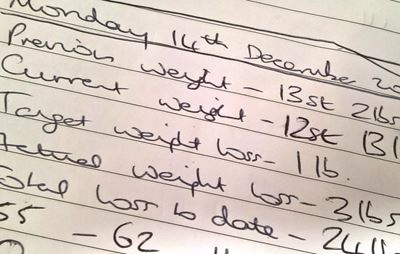 Monday 14th December 20
Previous weight - 13st 2lbs
Current weight - 12st 13l
Target weight loss - 1 lb.
Actual weight loss - 3lbs
Total loss to date - 24ll
55 - 62